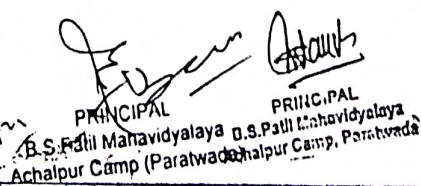 PRINCIPAL
B.S.Patil Mahavidyalaya
Achalpur Camp (Paratwada)
PRINCIPAL
B.S.Patil Mahavidyalaya
Achalpur Camp, Paratwada